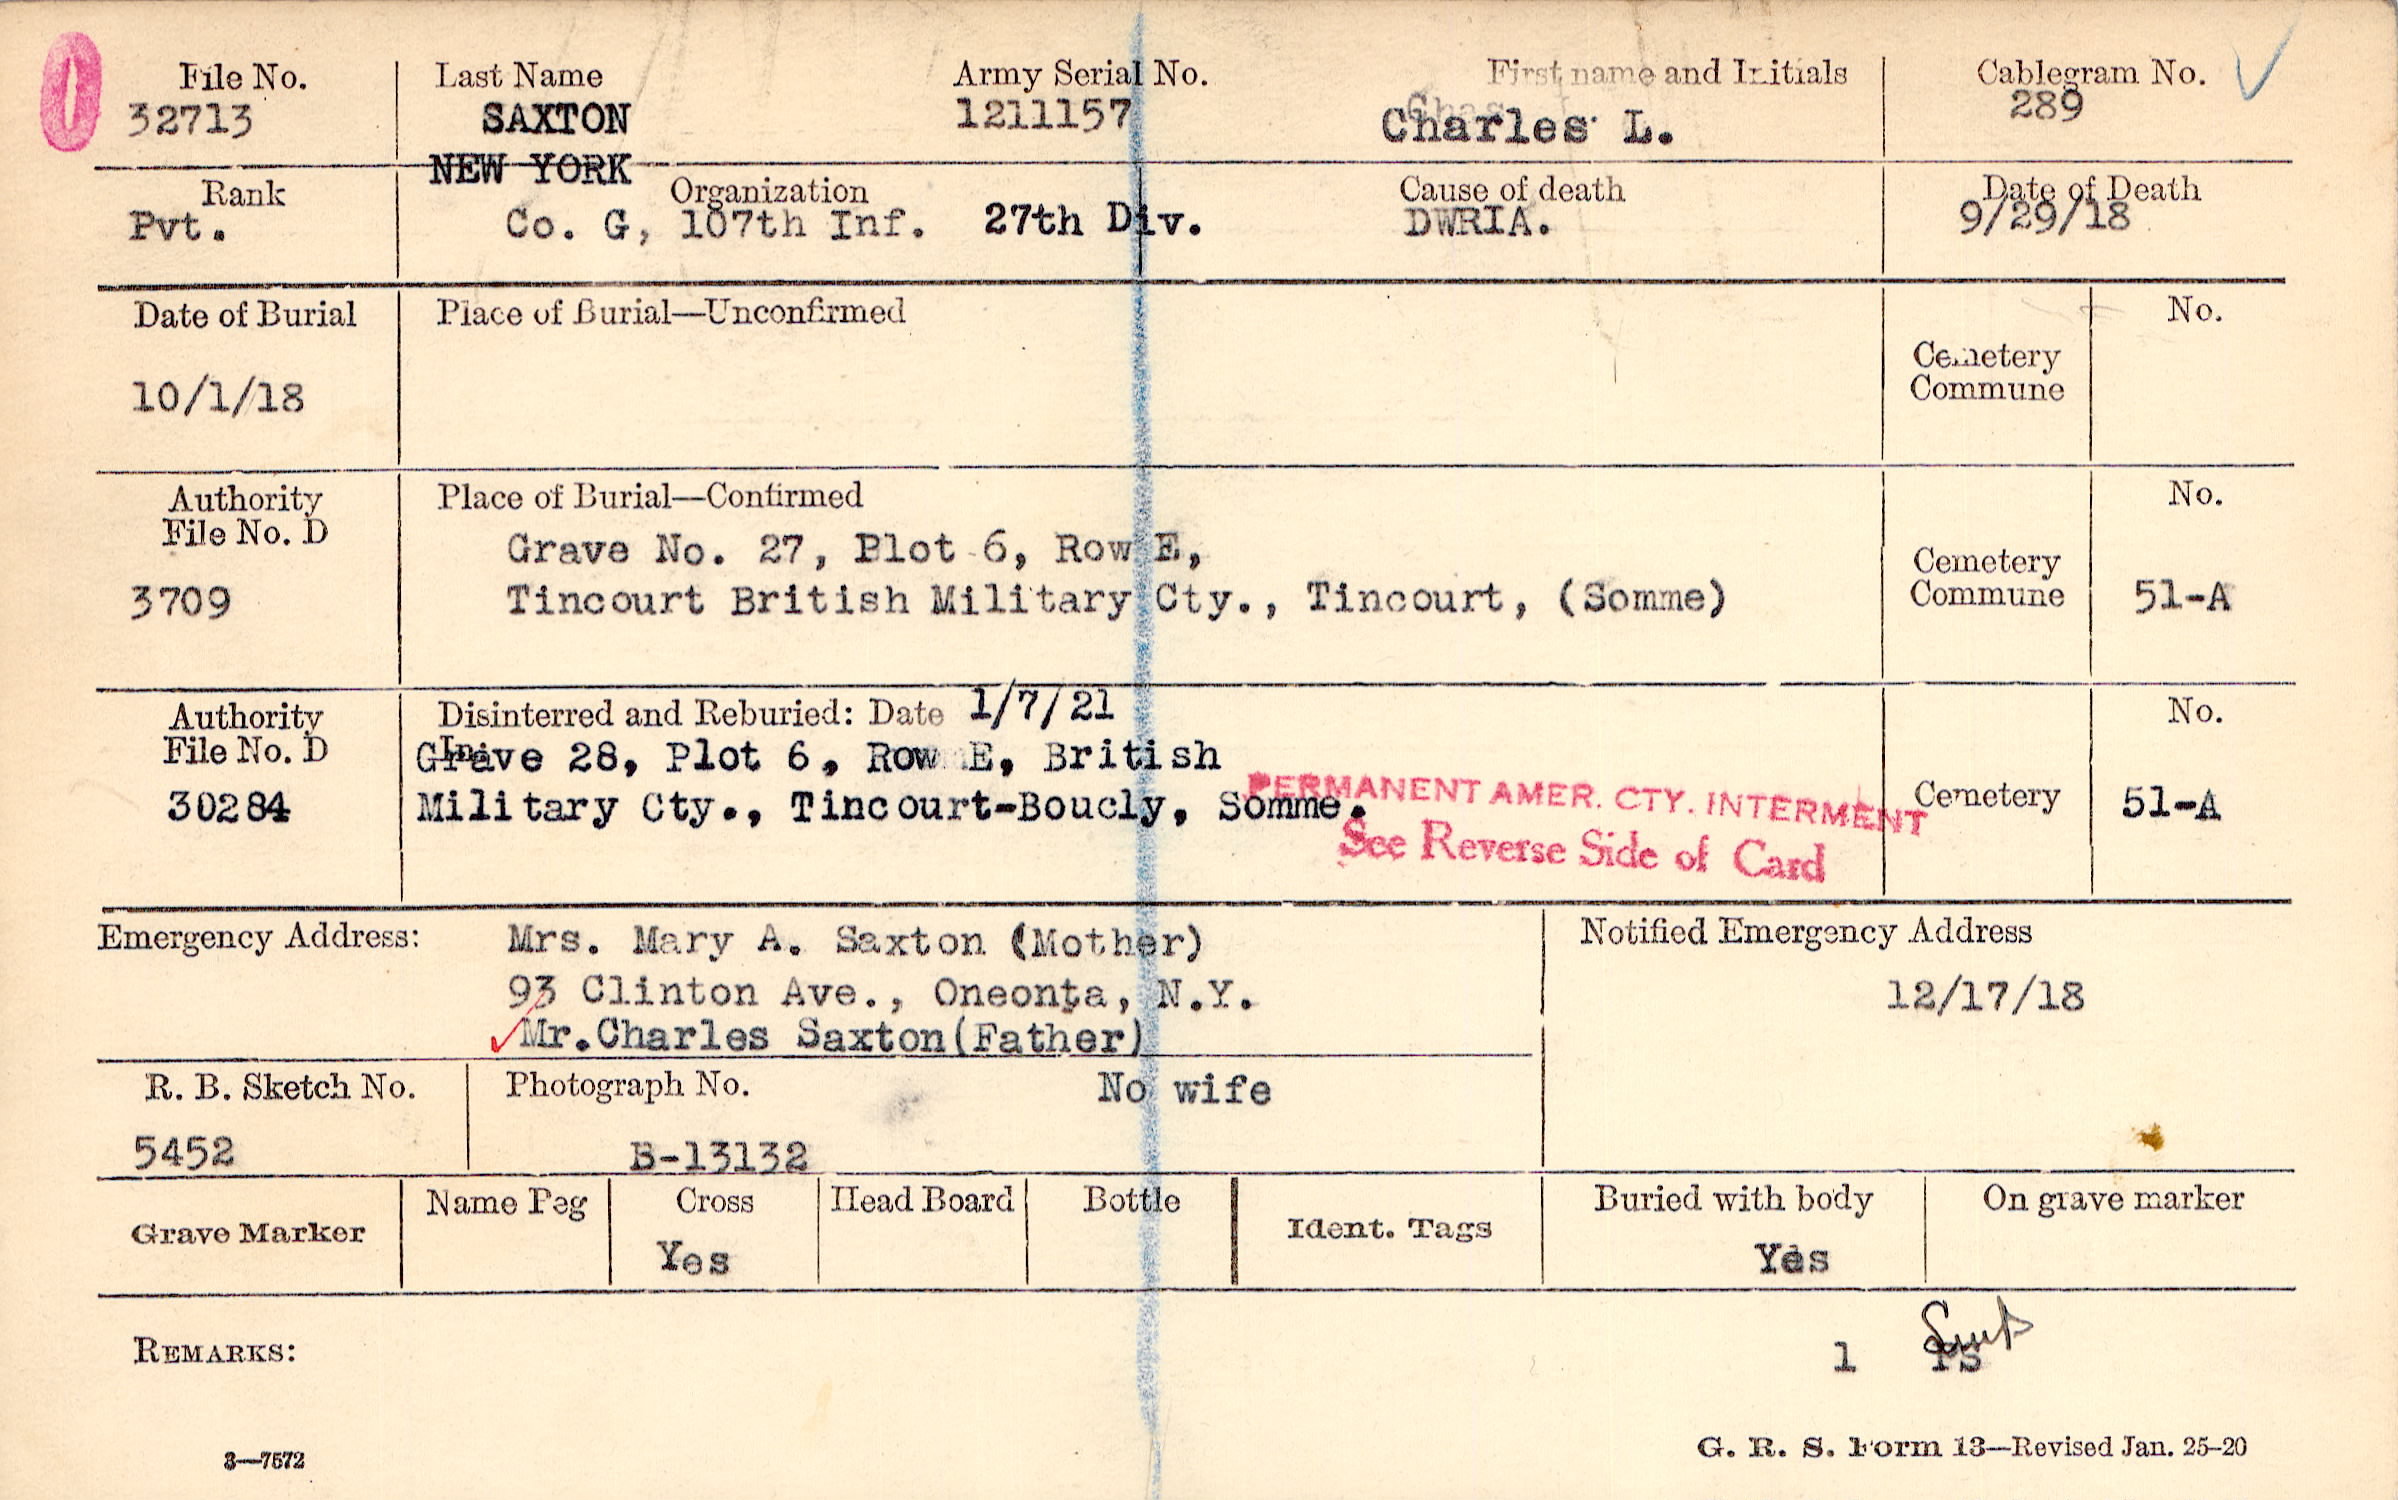 File No. Last Name Army Serial No. First name and Initials Cablegram No.
32713 SAXTON 1211157 Charles L. 289
NEW YORK
Rank Organization Cause of death Date of Death
Pvt. Co. G, 107th Inf. 27th Div. DWRIA. 9/29/18
Date of Burial Place of Burial—Unconfirmed No.
10/1/18 Cemetery
Commune
Authority Place of Burial—Confirmed No.
File No. D
Grave No. 27, Plot 6, Row E, Cemetery
3709 Tincourt British Military Cty., Tincourt, (Somme) Commune 51-A
Authority Disinterred and Reburied: Date 1/7/21 No.
File No. D In
Grave 28, Plot 6, Row E, British
30284 Military Cty., Tincourt-Boucly, Somme. Cemetery 51-A
PERMANENT AMER. CTY. INTERMENT
See Reverse Side of Card
Emergency Address: Mrs. Mary A. Saxton (Mother) Notified Emergency Address
93 Clinton Ave., Oneonta, N.Y. 12/17/18
Mr.Charles Saxton(Father)
R. B. Sketch No. Photograph No. No wife
5452 B-13132
Grave Marker Name Peg Cross Head Board Bottle Ident. Tags Buried with body On grave marker
Yes Yes
REMARKS: 1
3—7572 G. R. S. Form 13—Revised Jan. 25-20